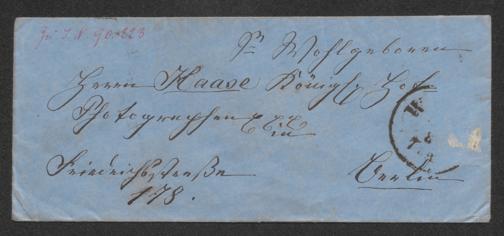 Zu I.N. 90.823
Sr Wohlgeboren
Herrn Haase Königl. Hof
Photographen
in
Friedrichsstraße
178.
Berlin